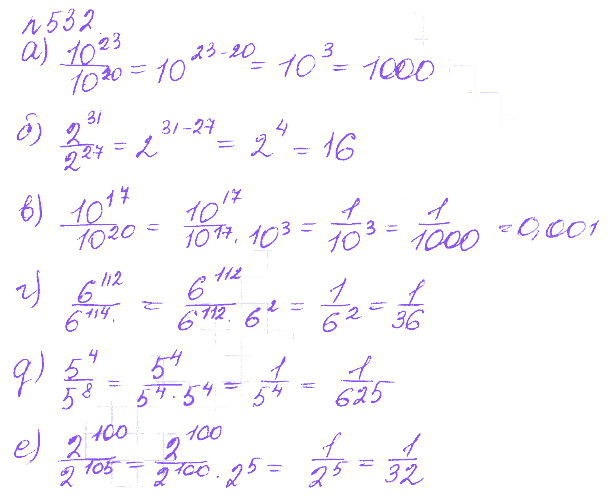 №532.
а) 10^23/10^20 = 10^23-20 = 10^3 = 1000
б) 2^31/2^27 = 2^31-27 = 2^4 = 16
в) 10^17/10^20 = 10^17/10^17 · 10^3 = 1/10^3 = 1/1000 = 0,001
г) 6^112/6^114 = 6^112/6^112 · 6^2 = 1/6^2 = 1/36
д) 5^4/5^8 = 5^4/5^4 · 5^4 = 1/5^4 = 1/625
е) 2^100/2^105 = 2^100/2^100 · 2^5 = 1/2^5 = 1/32